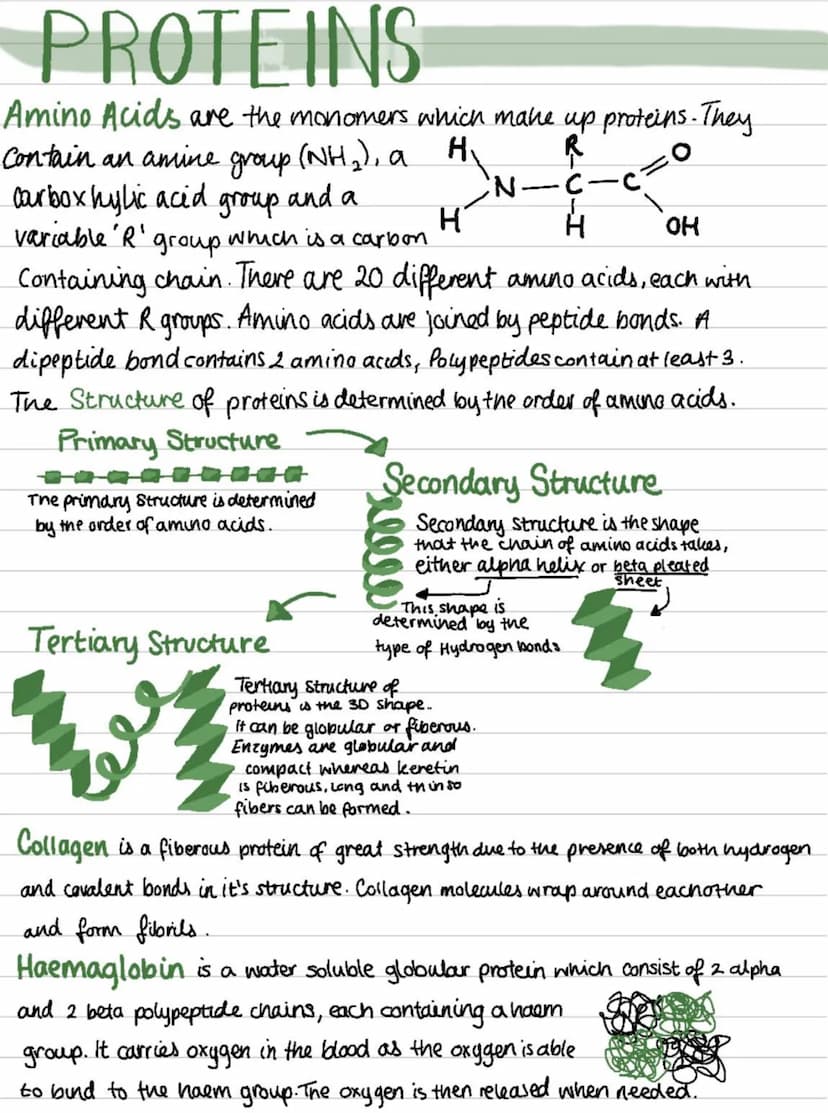 PROTEINS
Amino Acids are the monomers which make up proteins. They
contain an amine group (NH₂), a
carboxhylic acid group and a
variable 'R' group which is a carbon
H R O
N—C—C
H H OH
Containing chain. There are 20 different amino acids, each with
different R groups. Amino acids are joined by peptide bonds. A
dipeptide bond contains 2 amino acids, Polypeptides contain at least 3.
The Structure of proteins is determined by the order of amino acids.
Primary Structure
The primary structure is determined
by the order of amino acids.
Secondary Structure
Secondary structure is the shape
that the chain of amino acids takes,
either alpha helix or beta pleated
sheet
This shape is
determined by the
type of Hydrogen bonds
Tertiary Structure
Tertiary structure of
proteins is the 3D shape.
It can be globular or fiberous.
Enzymes are globular and
compact whereas keretin
is fiberous, long and thin so
fibers can be formed.
Collagen is a fiberous protein of great strength due to the presence of both hydrogen
and covalent bonds in it's structure. Collagen molecules wrap around eachother
and form fibrils.
Haemaglobin is a water soluble globular protein which consist of 2 alpha
and 2 beta polypeptide chains, each containing a haem
group. It carries oxygen in the blood as the oxygen is able
to bind to the haem group. The oxygen is then released when needed.